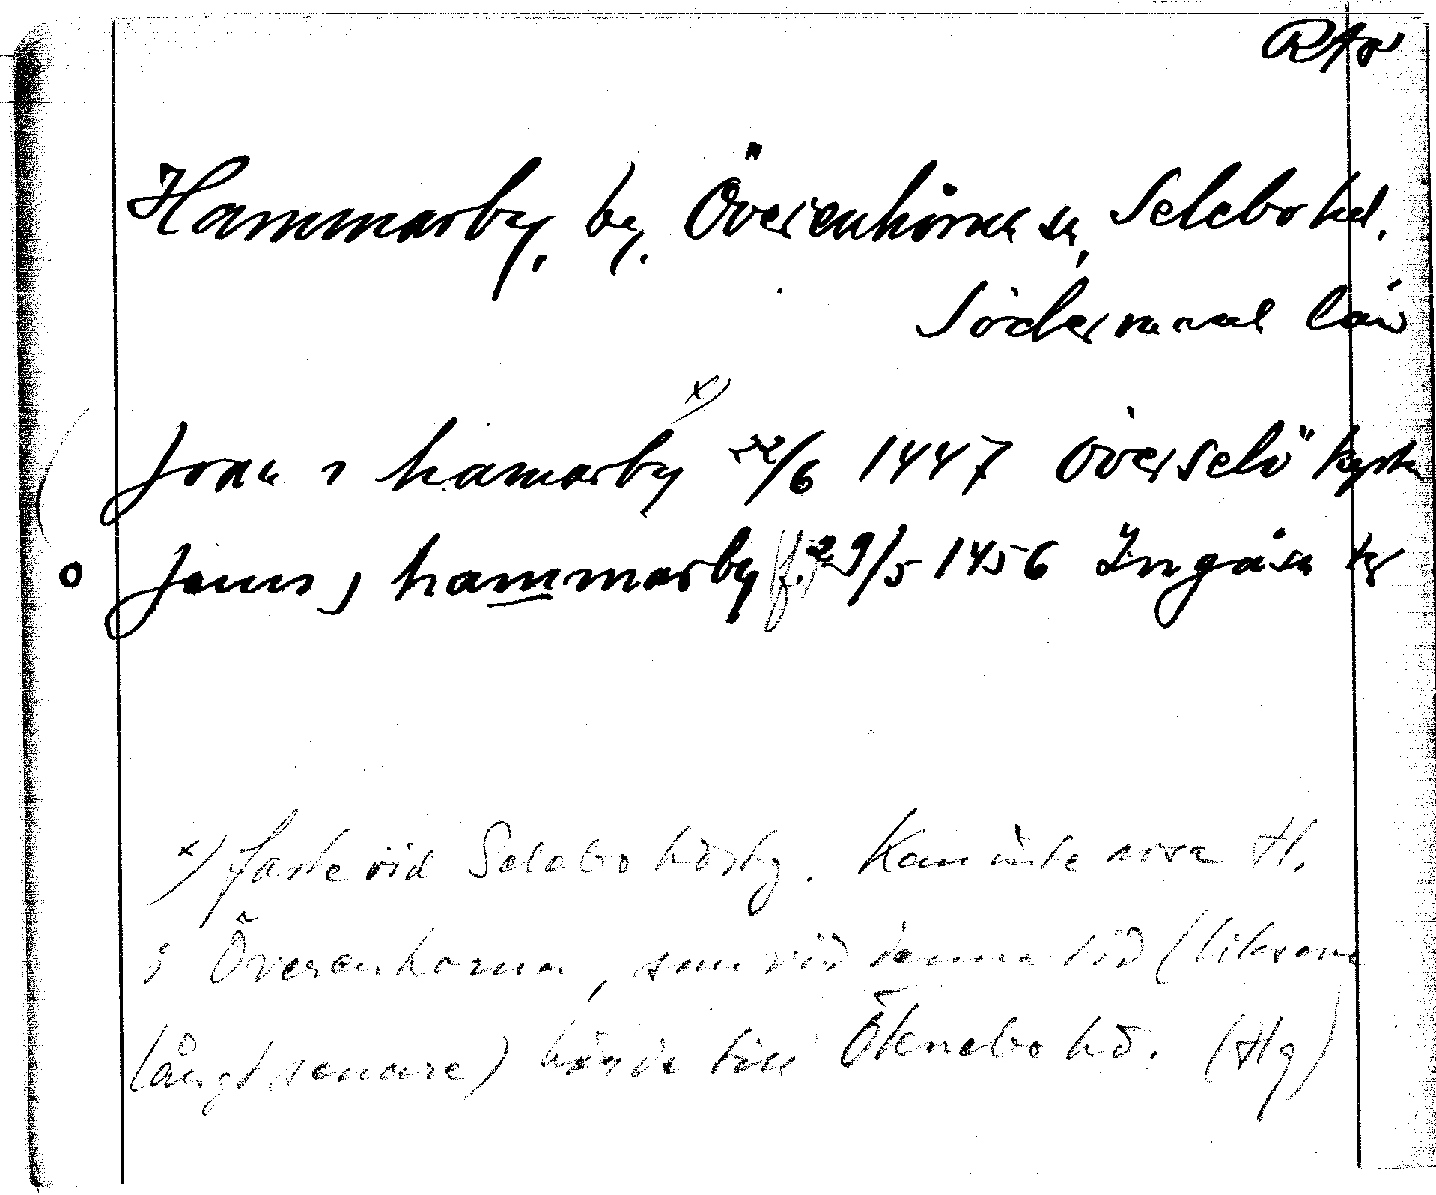 RAp
Hammarby, by, Överenhörna sn, Selebo hd.
Södermanl län
x)
Joan i hamarby 22/6 1447 Överselö kyrka
o Jenis j hammarby f. 29/5 1456 Ingåsa
x) faste vid Selebo hdsty. Kan inte avse H.
i Överenhörna, som vid denna tid (liksom
långt senare) hörde till Öknebo hd. (Hg)